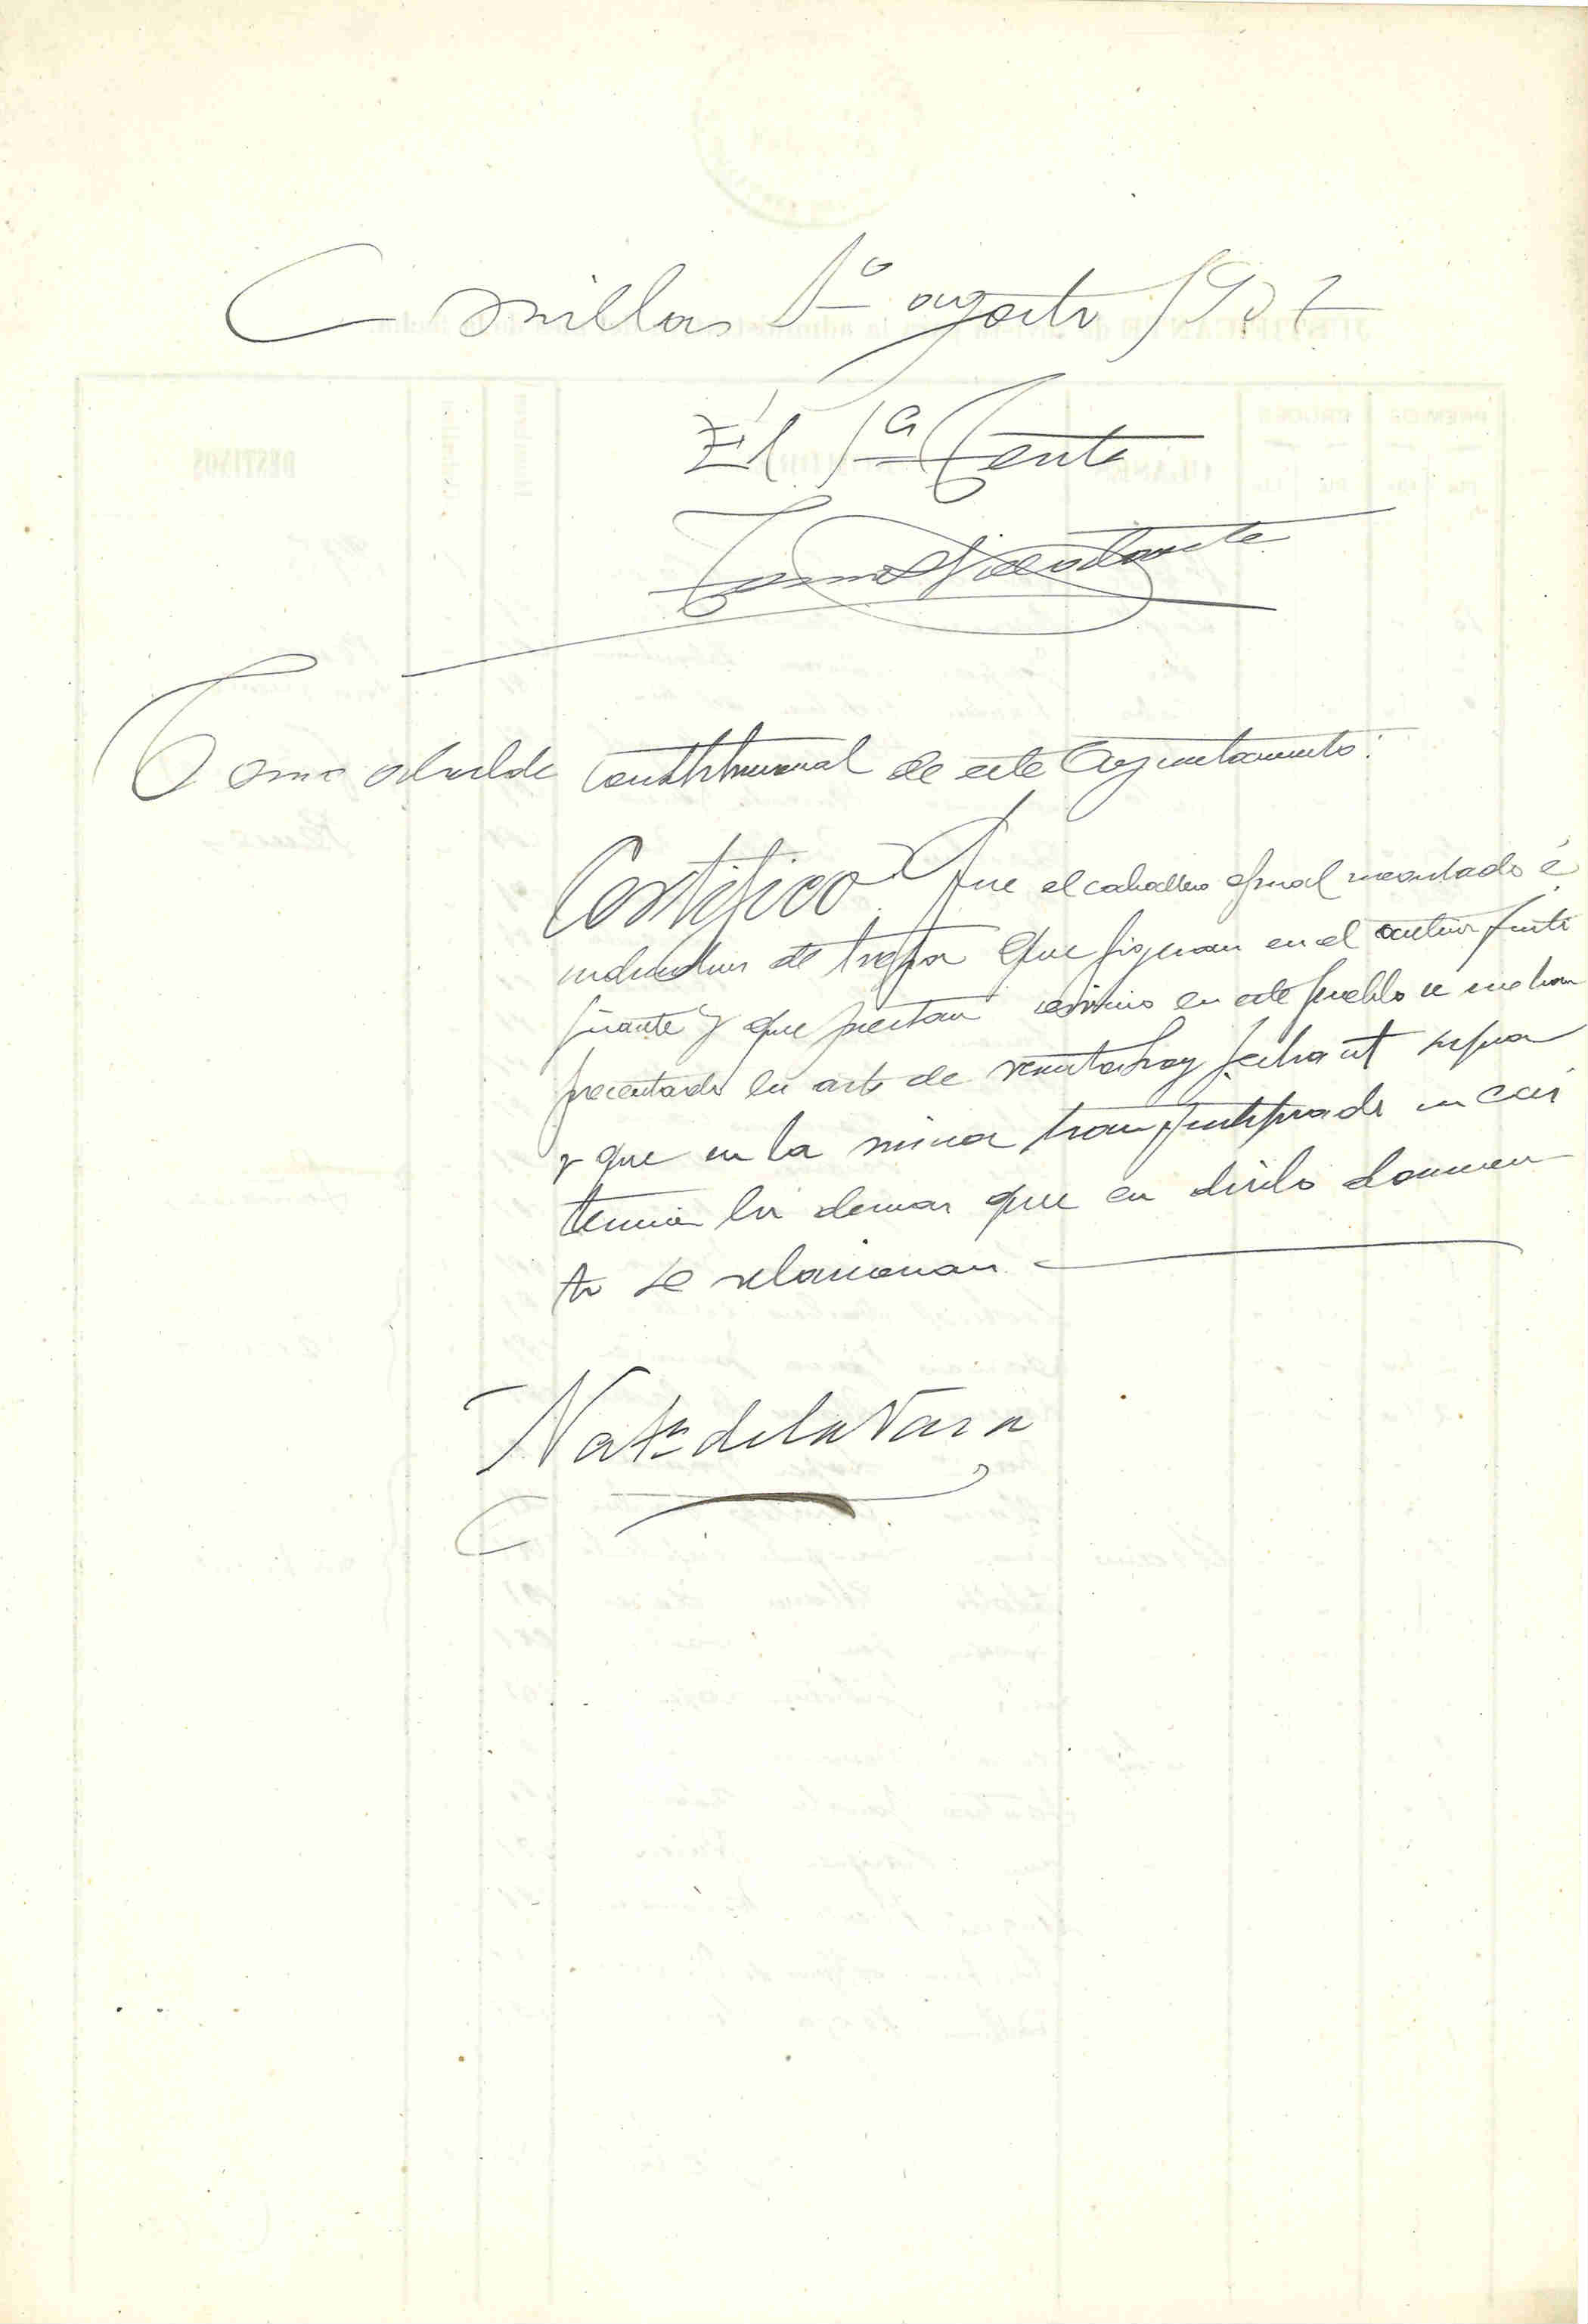 Comillas 1º agosto 1907
El 1er Tente
Como alcalde Constitucional de este Ayuntamiento:
Certifico Que el caballero oficial revistado é
individuos de tropa que figuran en el anterior justi
ficante y que prestan servicio en este pueblo se me han
presentado en acto de revista hoy fecha ut supra
y que en la misma han justificado su exis
tencia los demas que en dicho documen
to se relacionan
Nate de la Vara